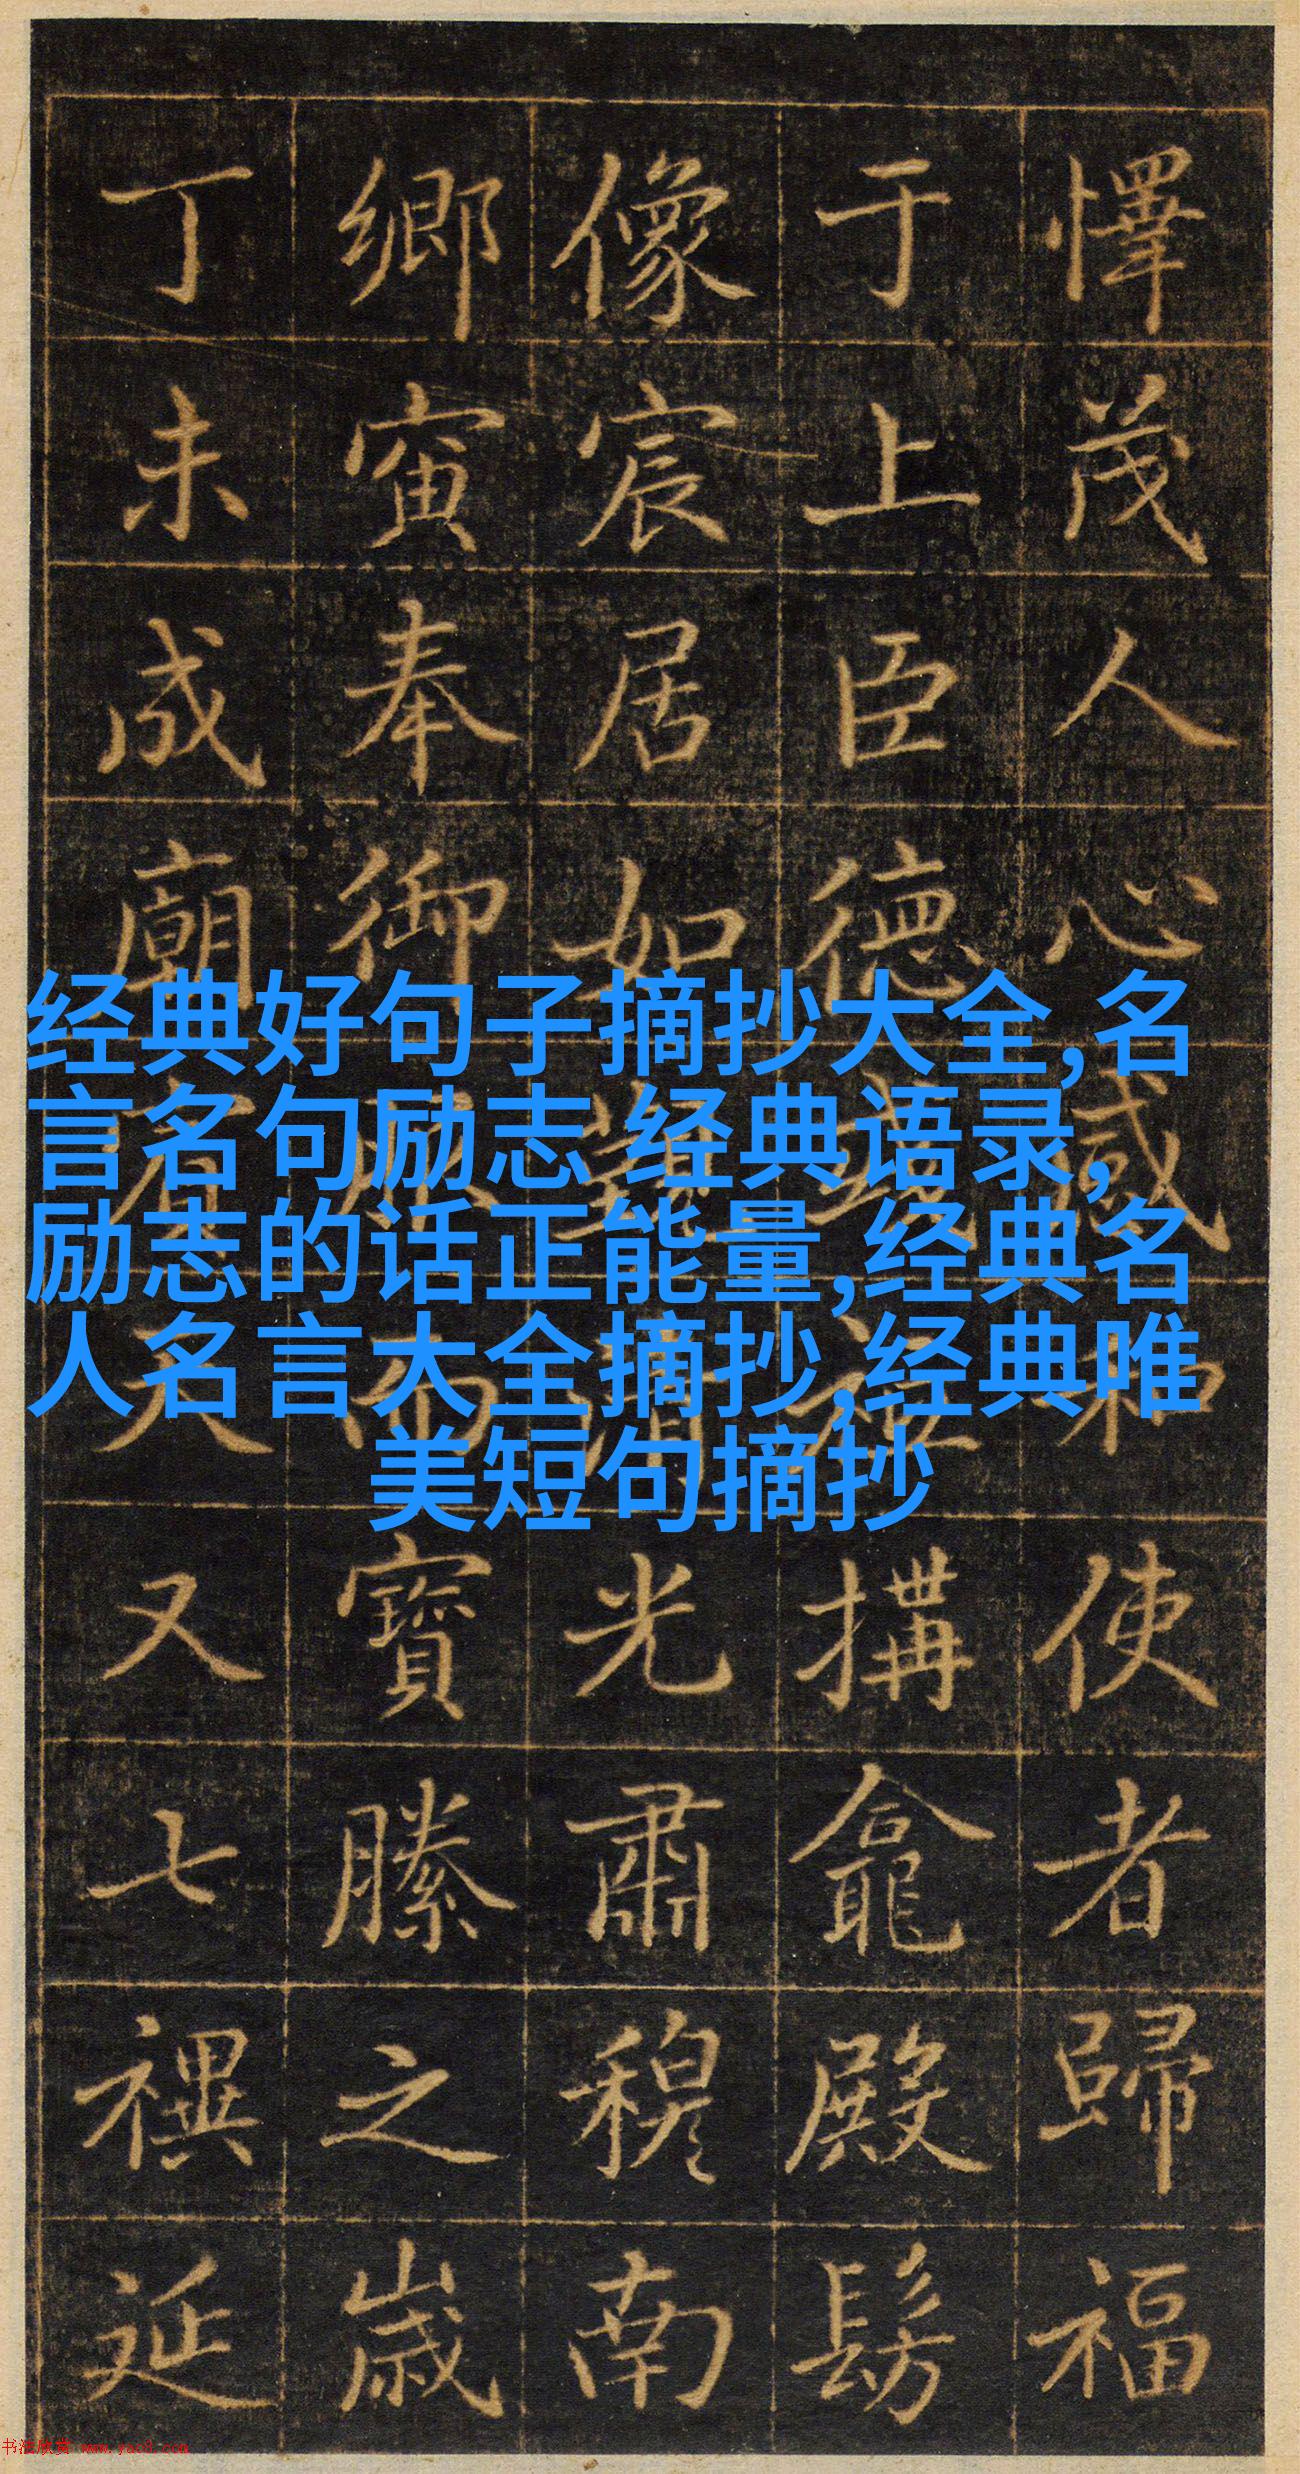 懌茂人心感和使者歸福
于上臣德搆龕殿髣
像宸居如對清光肅穆南
鄉寅奉御寶滕之歲
丁未成廟有大又七禩延
经典好句子摘抄大全,名
言名句励志 经典语录,
励志的话正能量,经典名
人名言大全摘抄,经典唯
美短句摘抄
书法欣赏 www.yac8.com